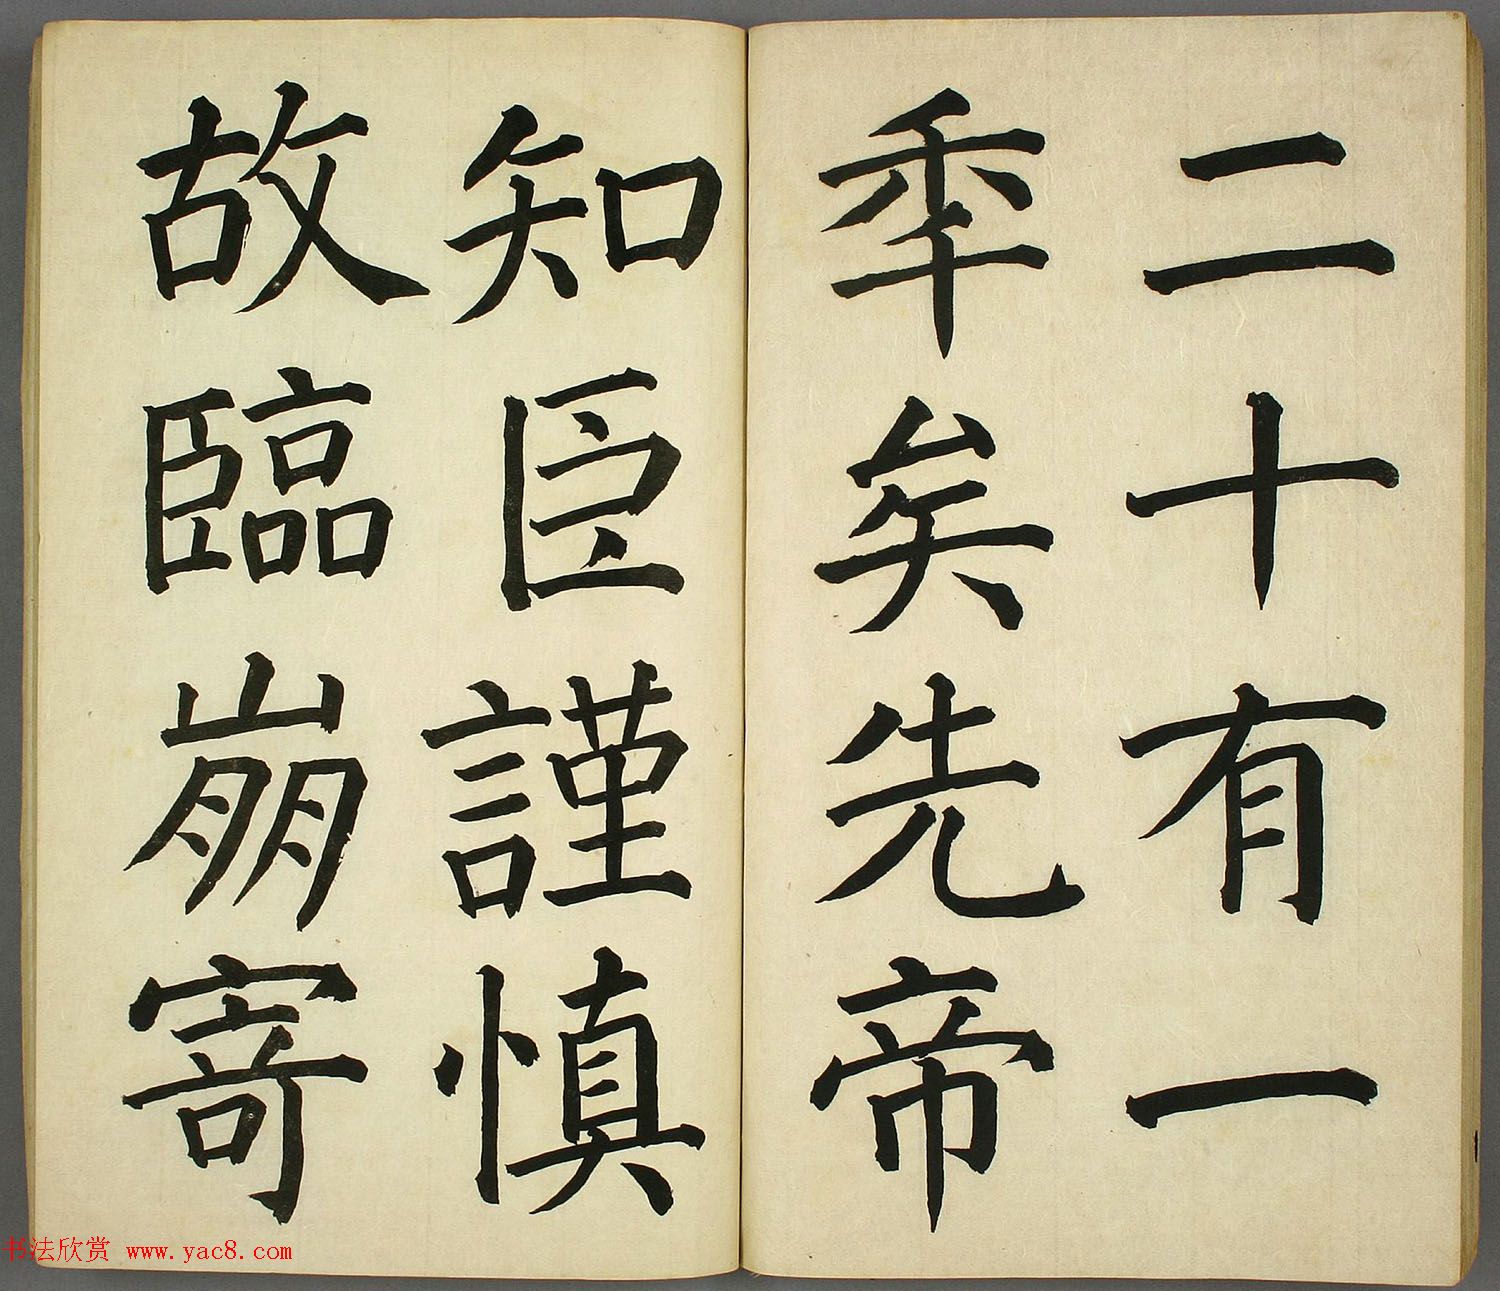 二十有一
年矣先帝
知臣謹慎
故臨崩寄
书法欣赏 www.yac8.com